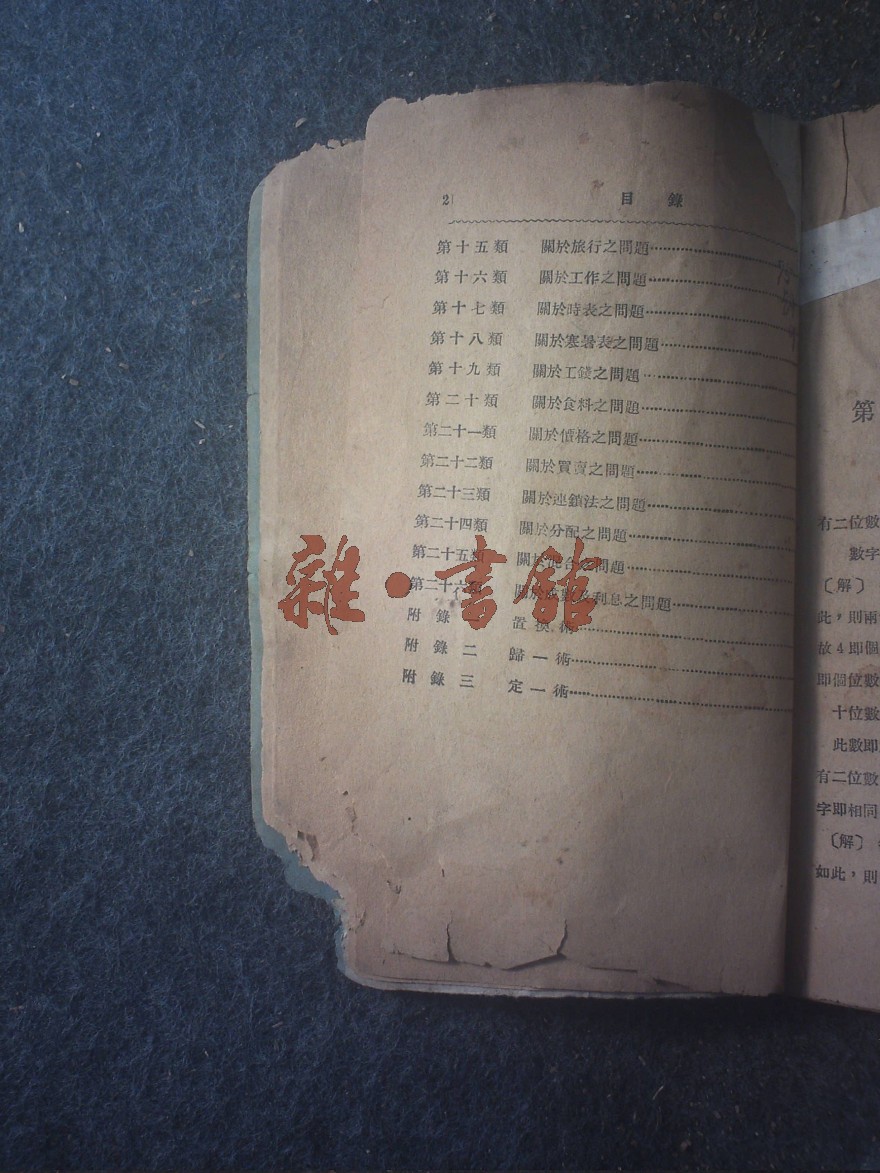 2 目錄
第十五類 關於旅行之問題
第十六類 關於工作之問題
第十七類 關於時表之問題
第十八類 關於寒暑表之問題
第十九類 關於工錢之問題
第二十類 關於食料之問題
第二十一類 關於價格之問題
第二十二類 關於買賣之問題
第二十三類 關於連鎖法之問題
第二十四類 關於分配之問題
第二十五類 關於混合之問題
第二十六類 關於 利息之問題
附錄 置換術
附錄二 歸一術
附錄三 定一術
雜·書館
第
有二位數
數字
〔解〕
此,則兩
故4即個
即個位數
十位數
此數即
有二位數
字即相同
〔解〕
如此,則